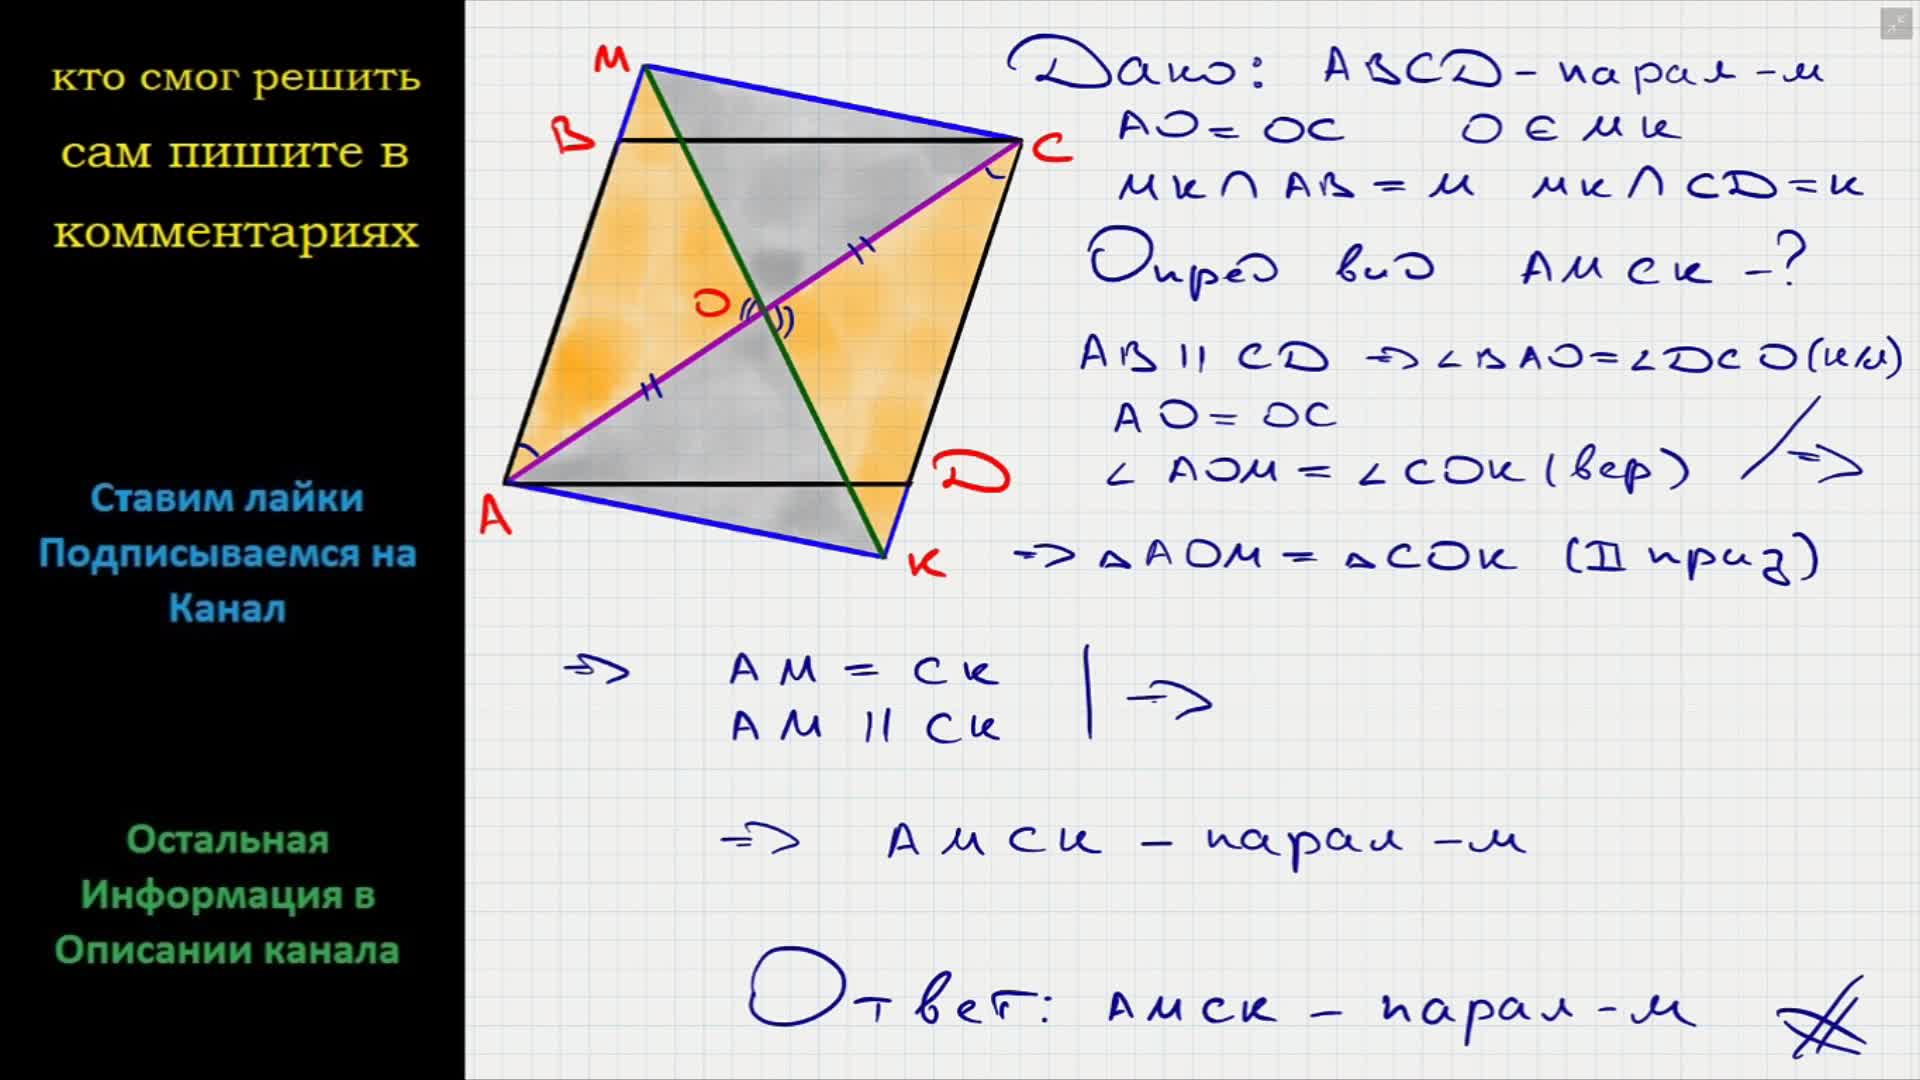 кто смог решить
сам пишите в
комментариях
Ставим лайки
Подписываемся на
Канал
Остальная
Информация в
Описании канала
M
B
C
O
A
D
K
Дано: ABCD - парал-м
AO = OC O ∈ MK
MK ∩ AB = M MK ∩ CD = K
Опред вид AMCK - ?
AB || CD ⇒ ∠BAO = ∠DCO (н/л)
AO = OC
∠AOM = ∠COK (вер) ⇒
⇒ △AOM = △COK (II приз)
⇒ AM = CK
AM || CK ⇒
⇒ AMCK - парал-м
Ответ: AMCK - парал-м